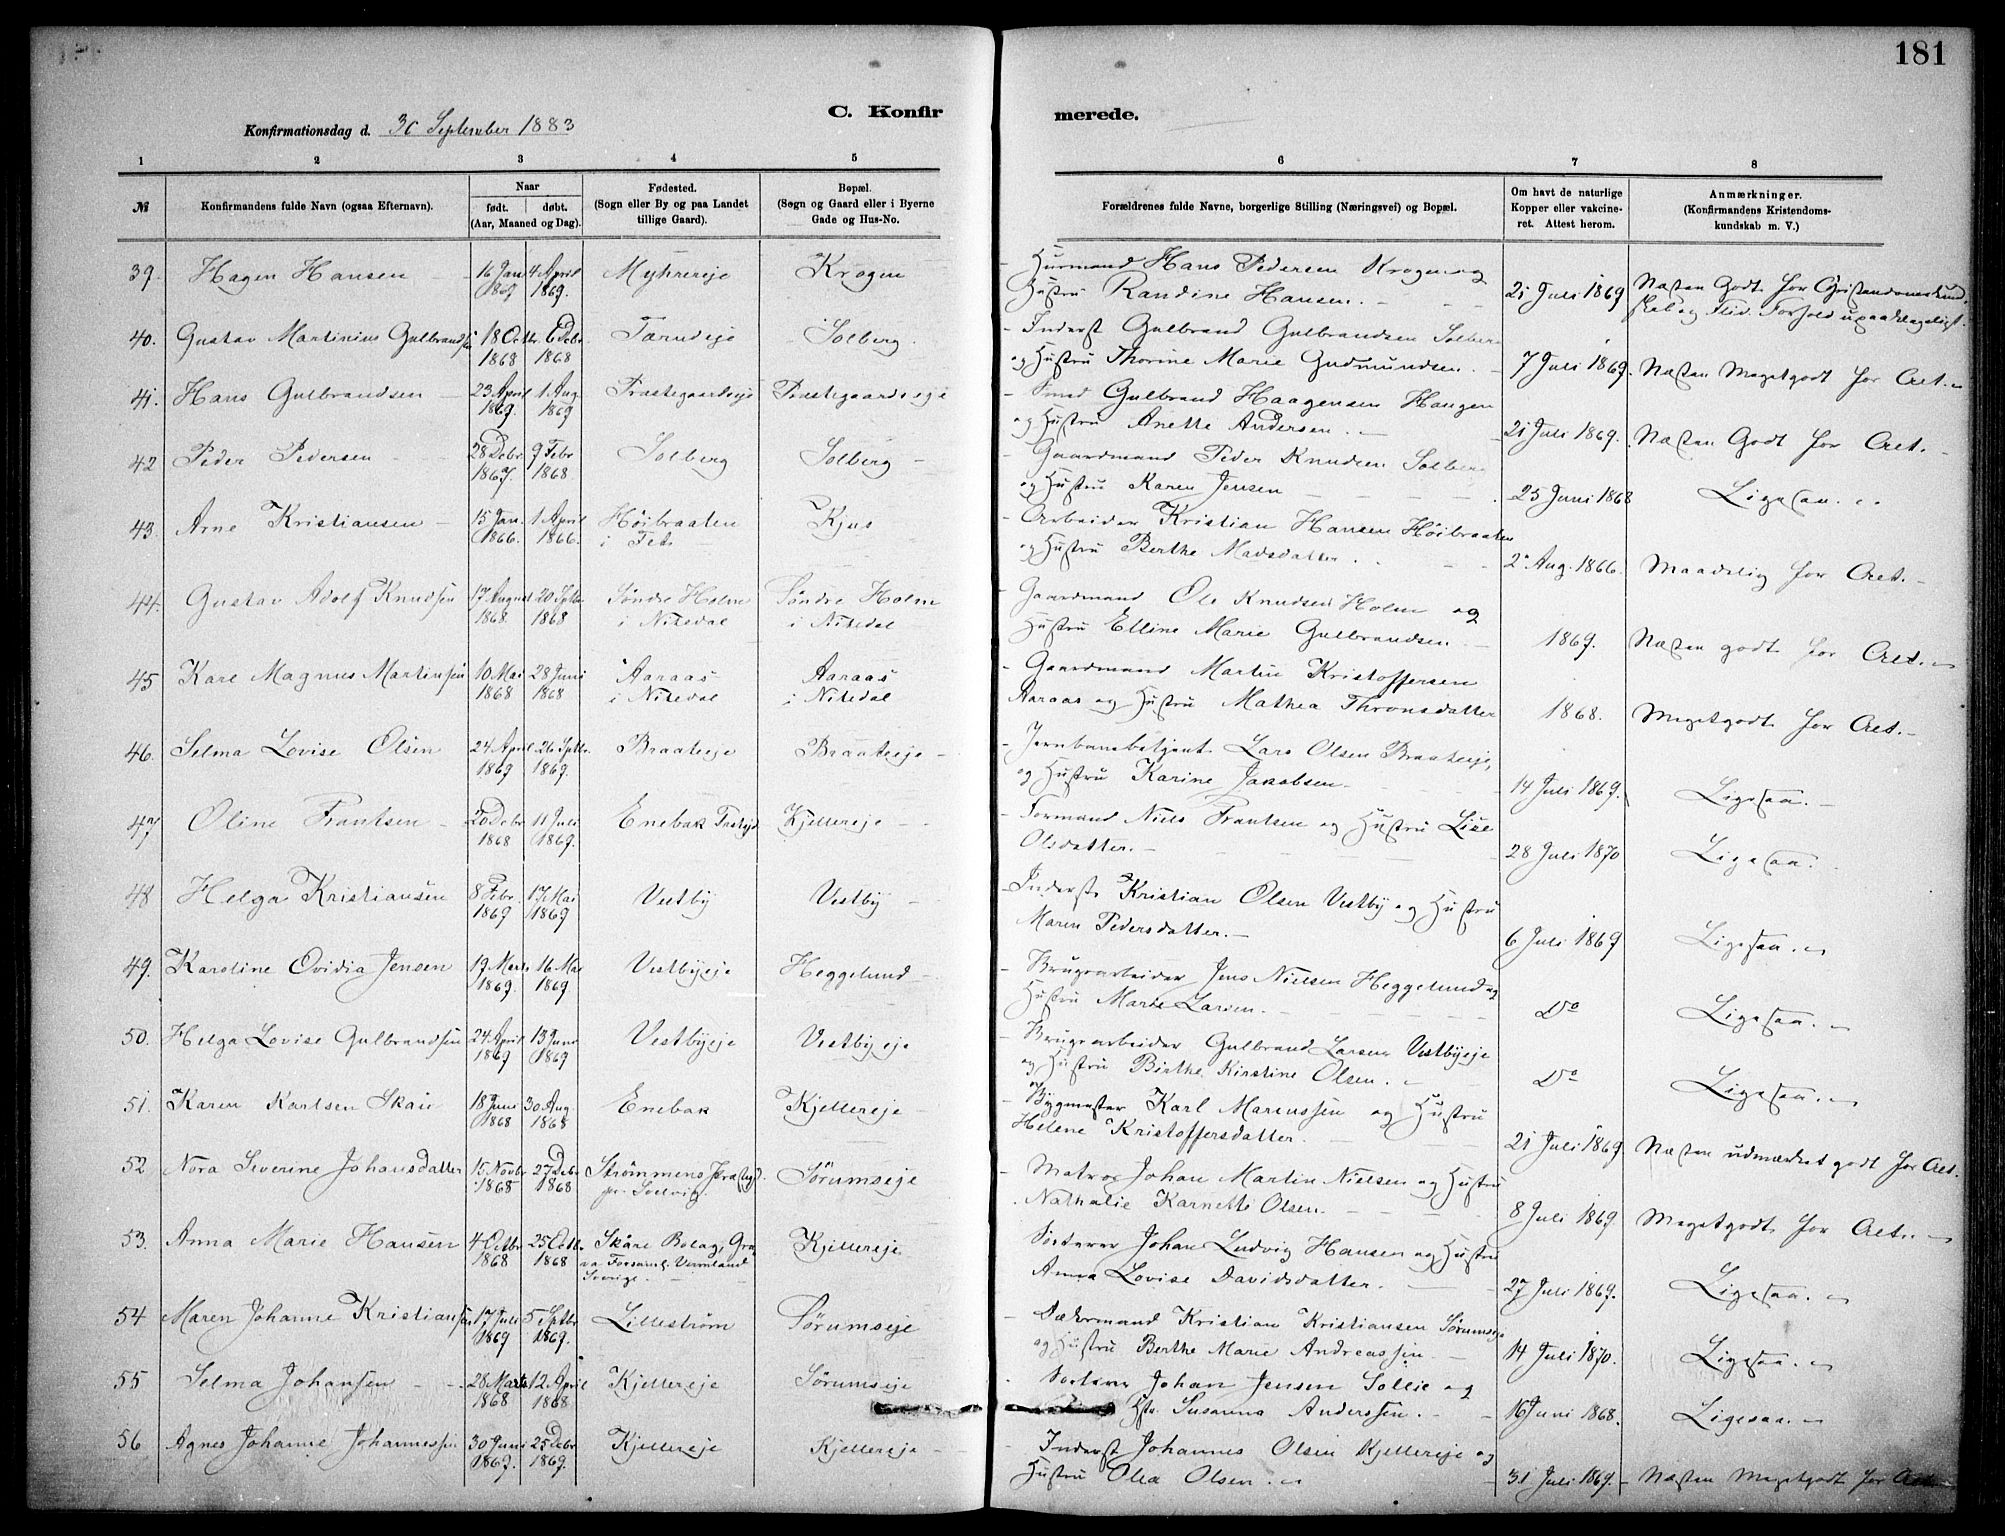 181
C. Konfir merede.
Konfirmationsdag d. 30 September 1883
1 2 3 4 5 6 7 8
№
Konfirmandens fulde Navn (ogsaa Efternavn).
Naar
født. døbt.
(Aar, Maaned og Dag).
Fødested.
(Sogn eller By og paa Landet
tillige Gaard).
Bopæl.
(Sogn og Gaard eller i Byerne
Gade og Hus-No.
Forældrenes fulde Navne, borgerlige Stilling (Næringsvei) og Bopæl.
Om havt de naturlige
Kopper eller vakcine-
ret. Attest herom.
Anmærkninger.
(Konfirmandens Kristendoms-
kundskab m. V.)
39. Hagen Hansen 16 Jan 4 April Myhrereje Krogen Husmand Hans Pedersen Krogen og
1869 1869. Hustru Randine Hansen. 21 Juli 1869 Næsten Godt for Cristendomskund
skab og Flid. Forhold upaaklageligt.
40. Gustav Martinius Gulbrandsen 18 Octbr. 6 Debr. Tærudeje Solberg. Inderst Gulbrand Gulbrandsen Solberg
1868 1868 og Hustru Thorine Marie Gudmundsen. 7 Juli 1869. Næsten Megetgodt for Aet.
41. Hans Gulbrandsen 23 April 1 Aug Præstegaardseje Præstegaardseje Smed Gulbrand Haagensen Haugen
1869. 1869 og Hustru Anette Andersen. 21 Juli 1869. Næsten Godt for Aet.
42 Peder Pedersen 28 Debr 9 Febr Solberg Solberg Gaardmand Peder Knudsen Solberg
1867. 1868 og Hustru Karen Jensen 25 Juni 1868 Ligesaa.
43. Arne Kristiansen 15 Jan. 1 April Høibraaten Kjus Arbeider Kristian Hansen Høibraaten
1866. 1866. i Fet og Hustru Berthe Madsdatter. 2 Aug. 1866. Maadelig for Aet.
44. Gustav Adolf Knudsen 17 August 20 Sptbr Søndre Holm Søndre Holm Gaardmand Ole Knudsen Holm og
1868 1868 i Nitedal i Nitedal Hustru Elline Marie Gulbrandsen. 1869. Næsten godt for Aet.
45 Karl Magnus Martinsen 10 Mai 28 Juni Aaraas Aaraas Gaardmand Martin Kristoffersen
1868 1868 i Nitedal i Nitedal Aaraas og Hustru Mathea Thronsdatter 1868. Megetgodt for Aet.
46. Selma Lovise Olsen 24 April 26 Sptbr. Braateeje Braateeje Jernbanebetjent Lars Olsen Braateeje,
1869 1869. og Hustru Karine Jakobsen. 14 Juli 1869. Ligesaa.
47 Oline Frantsen 20 Debr 11 Juli Enebak Kjellereje Formand Niels Frantsen og Hustru Lise
1868 1869. Olsdatter. 28 Juli 1870 Ligesaa.
48 Helga Kristiansen 8 Febr. 17 Mai Vestby Vestby Inderst Kristian Olsen Vestby og Hustru
1869 1869 Maren Pedersdatter. 6 Juli 1869 Ligesaa.
49. Karoline Ovidia Jensen 19 Marts 16 Mai Vestbyeje Heggelund Brugsarbeider Jens Nielsen Heggelund og
1869. 1869 Hustru Marte Larsen. Do Ligesaa.
50. Helga Lovise Gulbrandsen 24 April 13 Juni Vestbyeje Vestbyeje Brugsarbeider Gulbrand Larsen Vestbyeje
1869 1869 og Hustru Birthe Kirstine Olsen. Do Ligesaa.
51. Karen Karlsen Skau 18 Juni 30 Aug. Enebak Kjellereje Bygmester Karl Marcussen og Hustru
1868 1868 Helene Kristoffersdatter. 21 Juli 1869 Næsten udmærket godt for Aet.
52 Nora Severine Johansdatter 15 Novbr 27 Debr Strømmens Præstegj. Sørumseje Matros Johan Martin Nielsen og Hustru
1868 1868 pr. Svelvig. Nathalie Karnette Olsen. 8 Juli 1869 Megetgodt for Aet.
53. Anna Marie Hansen 4 Octbr 25 Octbr. Skåre Bolag, Gra Kjellereje Sorterer Johan Ludvig Hansen og Hustru
1868 1868 va Forsaml. Vermland Anna Lovise Davidsdatter. 27 Juli 1869. Ligesaa.
Sverige.
54 Maren Johanne Kristiansen 17 Juli 5 Sptbr Lillestrøm Sørumseje Kristian Kristiansen Sørumseje
1869 1869. og Hustru Berthe Marie Andreassen 14 Juli 1870. Ligesaa.
55 Selma Johansen 28 Marts 12 April Kjellereje Sørumseje Sorterer Johan Jensen Sollie og
1868 1868 Hstr. Susanna Anderssen. 16 Juni 1868. Ligesaa.
56 Agnes Johanne Johannessen 30 Juni 25 Debr Kjellereje Kjellereje Inderst Johannes Olsen Kjellereje og
1869. 1869. Hustru Olea Olsen. 31 Juli 1869. Næsten Megetgodt for Aet.